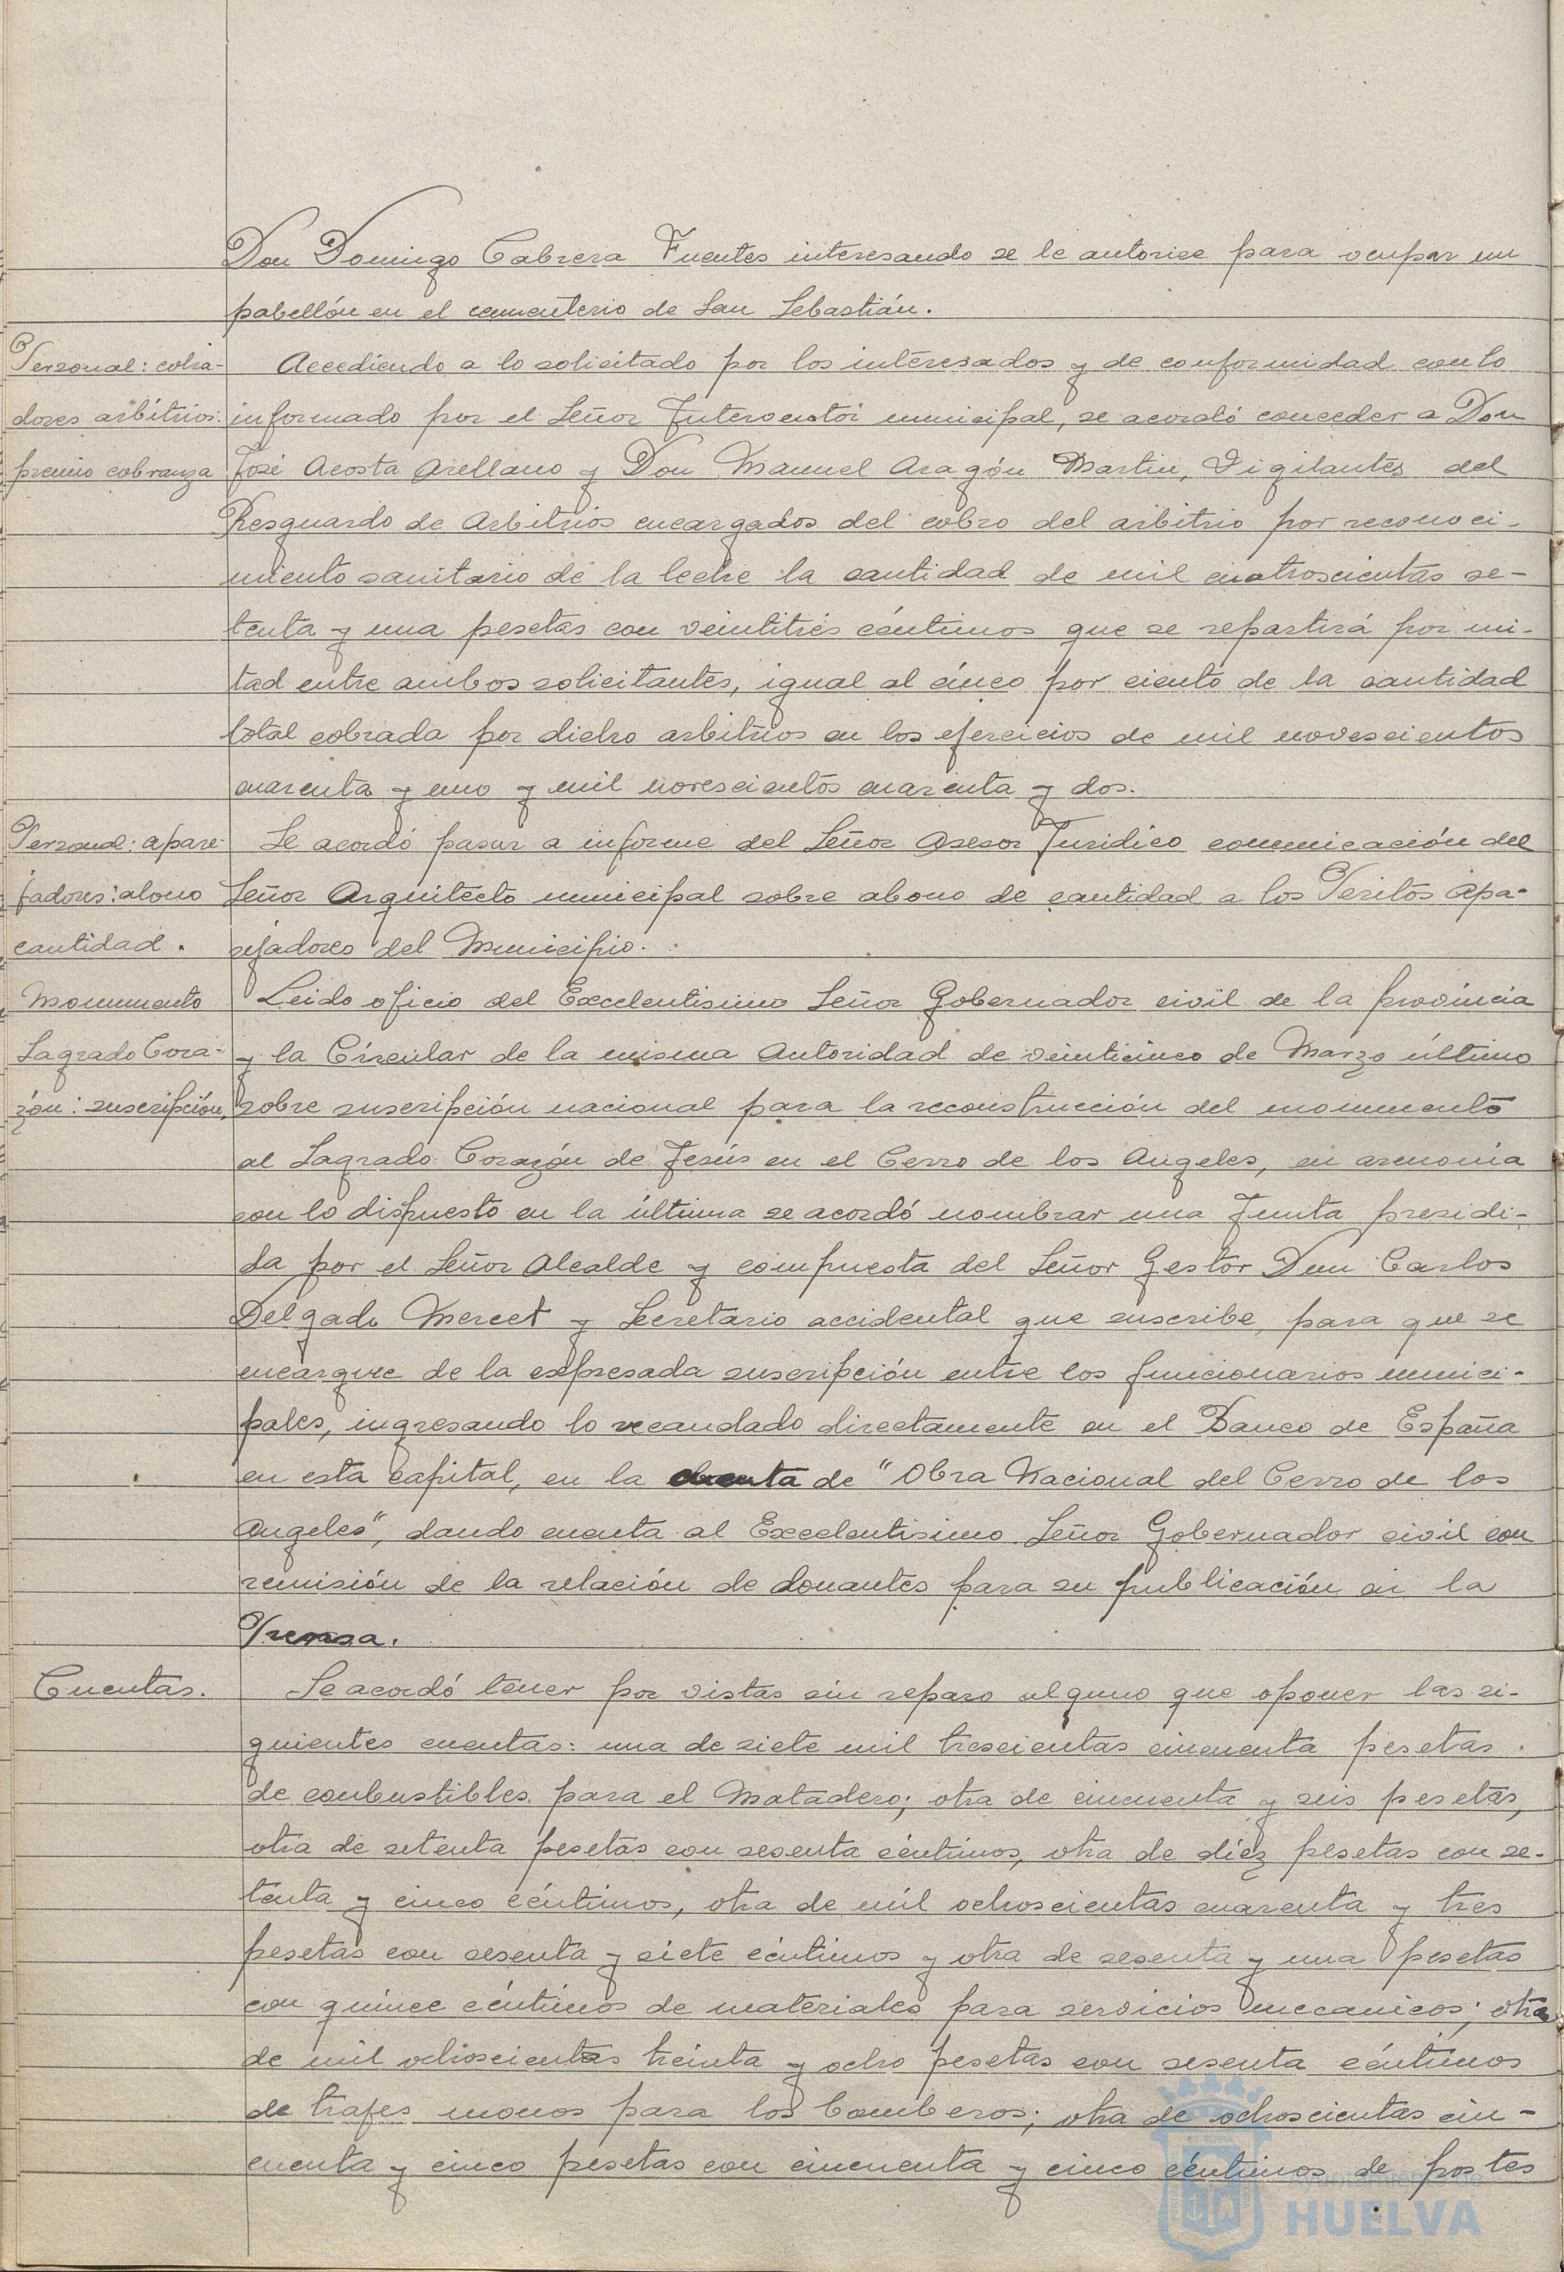 Don Domingo Cabrera Fuentes interesando se le autorice para ocupar un
pabellón en el cementerio de San Sebastián.
Personal: cobra-
dores arbitrios:
premio cobranza
Accediendo a lo solicitado por los interesados y de conformidad con lo
informado por el Señor Interventor municipal, se acordó conceder a Don
José Acosta Arellano y Don Manuel Aragón Martin, Vigilantes del
Resguardo de Arbitrios encargados del cobro del arbitrio por reconoci-
miento sanitario de la leche la cantidad de mil cuatroscientas se-
tenta y una pesetas con veintitrés céntimos que se repartirá por mi-
tad entre ambos solicitantes, igual al cinco por ciento de la cantidad
total cobrada por dicho arbitrios en los ejercicios de mil novescientos
cuarenta y uno y mil novescientos cuarenta y dos.
Personal: apare-
jadores: abono
cantidad.
Se acordó pasar a informe del Señor Asesor Jurídico comunicación del
Señor Arquitecto municipal sobre abono de cantidad a los Peritos Apa-
rejadores del Municipio.
Monumento
Sagrado Cora-
zón: suscripción.
Leido oficio del Excelentisimo Señor Gobernador civil de la provincia
y la Círcular de la misma Autoridad de veinticinco de Marzo último
sobre suscripción nacional para la reconstrucción del monumento
al Sagrado Corazón de Jesús en el Cerro de los Angeles, en armonia
con lo dispuesto en la última se acordó nombrar una Junta presidi-
da por el Señor Alcalde y compuesta del Señor Gestor Don Carlos
Delgado Mercet y Secretario accidental que suscribe, para que se
encargue de la expresada suscripción entre los funcionarios munici-
pales, ingresando lo recaudado directamente en el Banco de España
en esta capital, en la cuenta de "Obra Nacional del Cerro de los
Angeles", dando cuenta al Excelentisimo Señor Gobernador civil con
remisión de la relación de donantes para su publicación en la
Prensa.
Cuentas.
Se acordó tener por vistas sin reparo alguno que oponer las si-
guientes cuentas: una de siete mil trescientas cincuenta pesetas
de combustibles para el Matadero; otra de cincuenta y seis pesetas,
otra de setenta pesetas con sesenta céntimos, otra de díez pesetas con se-
tenta y cinco céntimos, otra de mil ochoscientas cuarenta y tres
pesetas con sesenta y siete céntimos y otra de sesenta y una pesetas
con quince céntimos de materiales para servicios mecanicos; otra
de mil ochoscientas treinta y ocho pesetas con sesenta céntimos
de trajes monos para los bomberos; otra de ochoscientas cin-
cuenta y cinco pesetas con cincuenta y cinco céntimos de postes
Ayuntamiento de
HUELVA